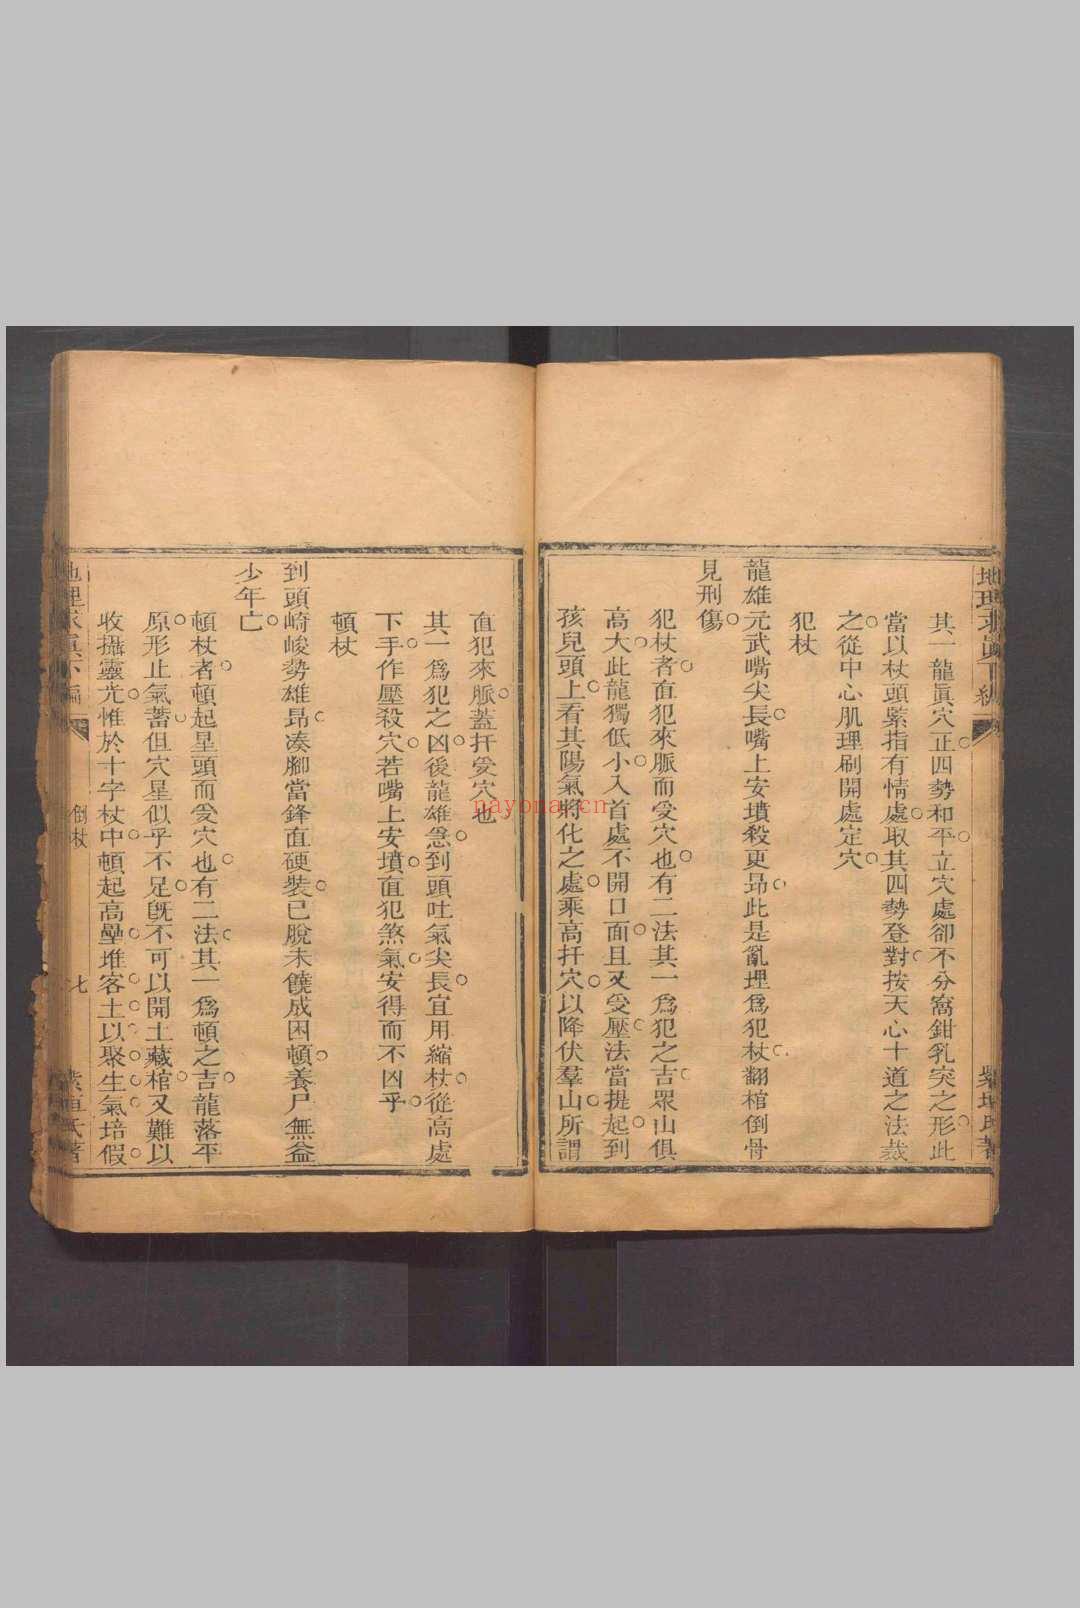 地理求眞下編
其一龍眞穴正四勢和平立穴處卻不分窩鉗乳突之形此
當以杖頭緊指有情處取其四勢登對按天心十道之法裁
之從中心肌理刷開處定穴
犯杖
龍雄元武嘴尖長嘴上安墳殺更昂此是亂埋爲犯杖翻棺倒骨
見刑傷
犯杖者直犯來脈而受穴也有二法其一爲犯之吉眾山俱
高大此龍獨低小入首處不開口面且又受壓法當提起到
孩兒頭上看其陽氣將化之處乘高扦穴以降伏羣山所謂
直犯來脈蓋扦受穴也
其一爲犯之凶後龍雄急到頭吐氣尖長宜用縮杖從高處
下手作壓殺穴若嘴上安墳直犯煞氣安得而不凶乎
頓杖
到頭崎峻勢雄昂湊腳當鋒直硬裝已脫未饒成困頓養尸無益
少年亡
頓杖者頓起星頭而受穴也有二法其一爲頓之吉龍落平
原形止氣蓄但穴星似乎不足旣不可以開土藏棺又難以
收攝靈光惟於十字杖中頓起高壘堆客土以聚生氣培假
地理求眞下編
倒杖
七
紫垣氏著
nayona.cn